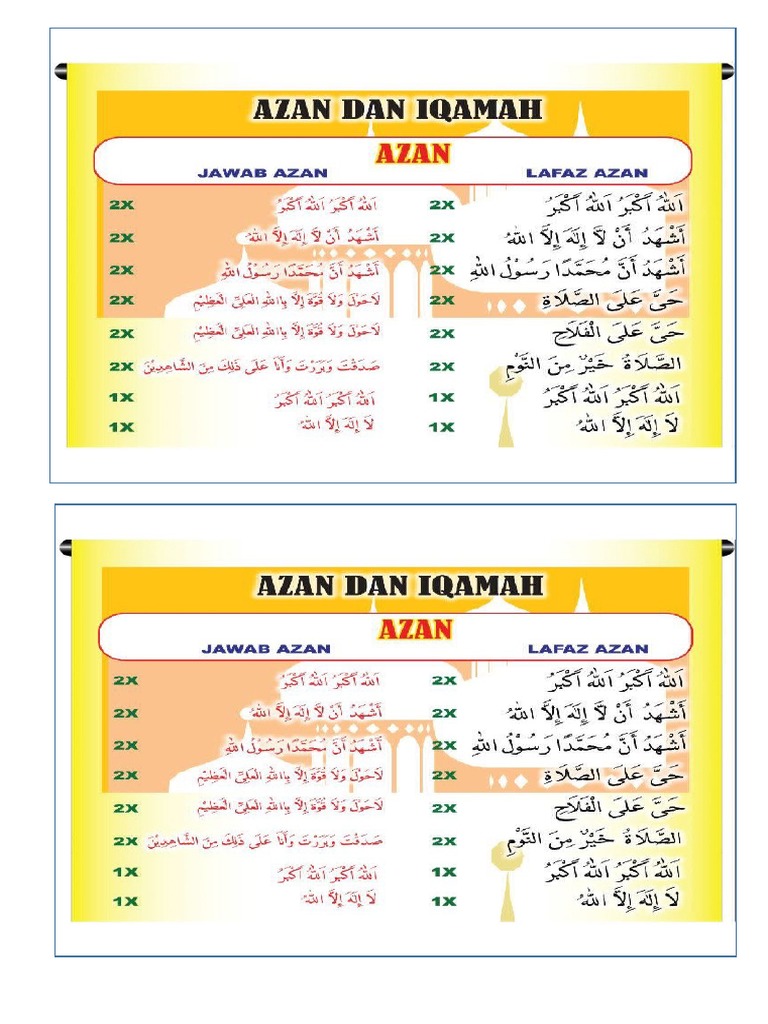 AZAN DAN IQAMAH
AZAN
JAWAB AZAN LAFAZ AZAN
2X اَللهُ اَكْبَرُ اَللهُ اَكْبَرُ 2X اَللهُ اَكْبَرُ اَللهُ اَكْبَرُ
2X أَشْهَدُ أَنْ لاَّ إِلَهَ إِلاَّ اللهُ 2X أَشْهَدُ أَنْ لاَّ إِلَهَ إِلاَّ اللهُ
2X أَشْهَدُ أَنَّ مُحَمَّدًا رَسُوْلُ اللهِ 2X أَشْهَدُ أَنَّ مُحَمَّدًا رَسُوْلُ اللهِ
2X لاَحَوْلَ وَلاَ قُوَّةَ إِلاَّ بِاللهِ الْعَلِىِّ الْعَظِيْمِ 2X حَىَّ عَلَى الصَّلاَةِ
2X لاَحَوْلَ وَلاَ قُوَّةَ إِلاَّ بِاللهِ الْعَلِىِّ الْعَظِيْمِ 2X حَىَّ عَلَى الْفَلاَحِ
2X صَدَقْتَ وَبَرَرْتَ وَأَنَا عَلَى ذَلِكَ مِنَ الشَّاهِدِيْنَ 2X الصَّلاَةُ خَيْرٌ مِنَ النَّوْمِ
1X اَللهُ اَكْبَرُ اَللهُ اَكْبَرُ 1X اَللهُ اَكْبَرُ اَللهُ اَكْبَرُ
1X لاَ إِلَهَ إِلاَّ اللهُ 1X لاَ إِلَهَ إِلاَّ اللهُ
AZAN DAN IQAMAH
AZAN
JAWAB AZAN LAFAZ AZAN
2X اَللهُ اَكْبَرُ اَللهُ اَكْبَرُ 2X اَللهُ اَكْبَرُ اَللهُ اَكْبَرُ
2X أَشْهَدُ أَنْ لاَّ إِلَهَ إِلاَّ اللهُ 2X أَشْهَدُ أَنْ لاَّ إِلَهَ إِلاَّ اللهُ
2X أَشْهَدُ أَنَّ مُحَمَّدًا رَسُوْلُ اللهِ 2X أَشْهَدُ أَنَّ مُحَمَّدًا رَسُوْلُ اللهِ
2X لاَحَوْلَ وَلاَ قُوَّةَ إِلاَّ بِاللهِ الْعَلِىِّ الْعَظِيْمِ 2X حَىَّ عَلَى الصَّلاَةِ
2X لاَحَوْلَ وَلاَ قُوَّةَ إِلاَّ بِاللهِ الْعَلِىِّ الْعَظِيْمِ 2X حَىَّ عَلَى الْفَلاَحِ
2X صَدَقْتَ وَبَرَرْتَ وَأَنَا عَلَى ذَلِكَ مِنَ الشَّاهِدِيْنَ 2X الصَّلاَةُ خَيْرٌ مِنَ النَّوْمِ
1X اَللهُ اَكْبَرُ اَللهُ اَكْبَرُ 1X اَللهُ اَكْبَرُ اَللهُ اَكْبَرُ
1X لاَ إِلَهَ إِلاَّ اللهُ 1X لاَ إِلَهَ إِلاَّ اللهُ